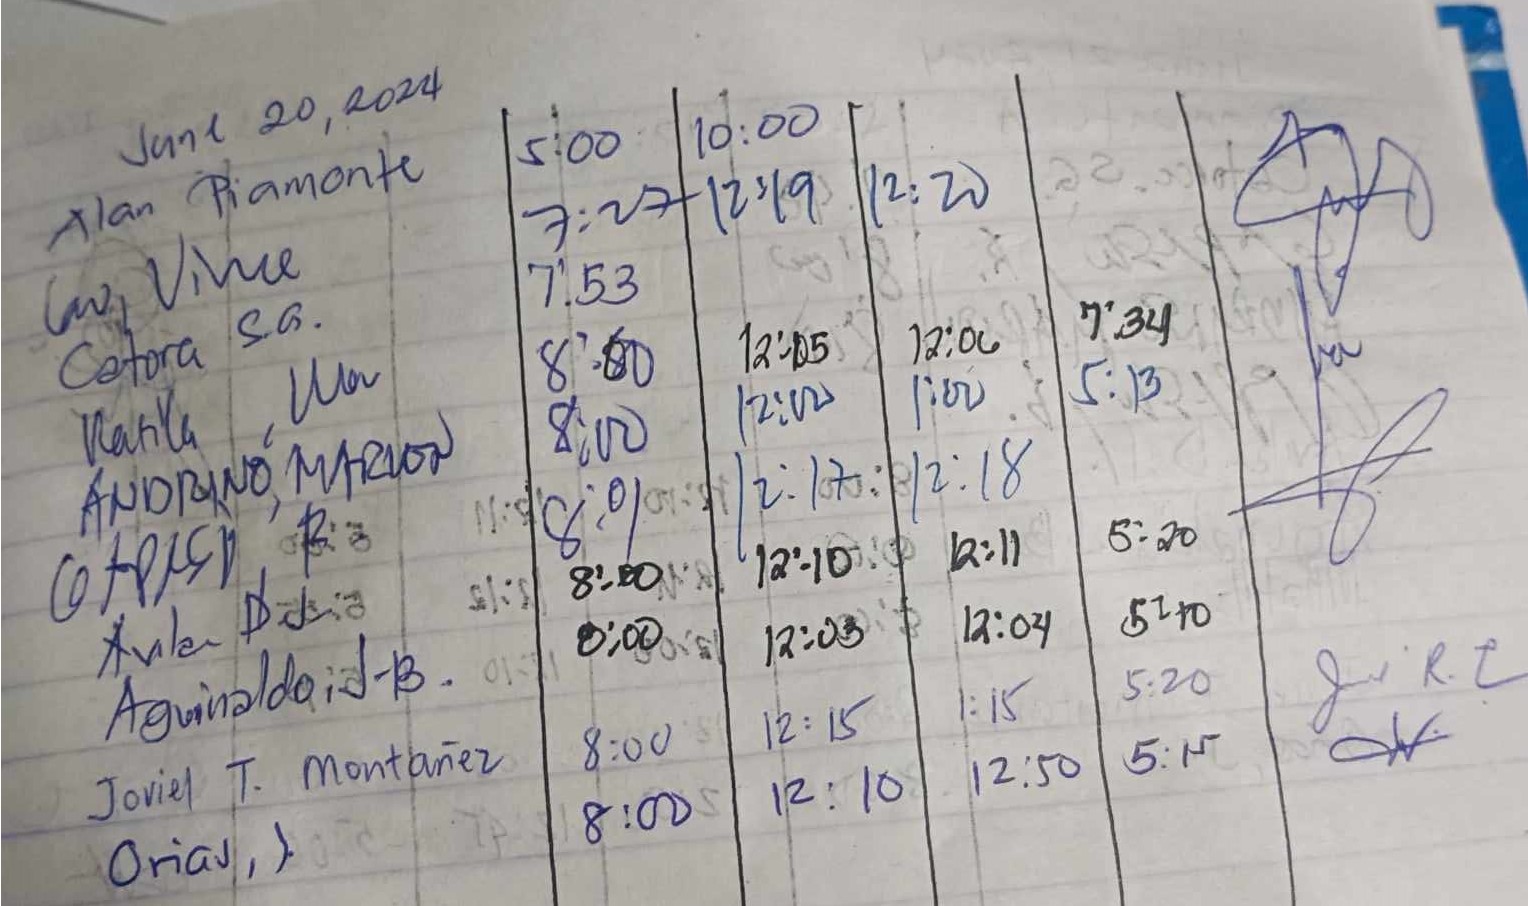 June 20, 2024
Alan Piamonte 5:00 10:00
Vince 7:27 12:19 12:20
Cetora S.G. 7:53
8:00 12:05 12:06 7:34
ANDRINO, MARLON 8:00 12:00 1:00 5:13
R 8:01 12:17 12:18
D.J. 8:00 12:10 12:11 5:20
Aguinaldo, J-B. 8:00 12:03 12:04 5:10
Joviel T. Montañez 8:00 12:15 1:15 5:20
Orias, J 8:00 12:10 12:50 5:15